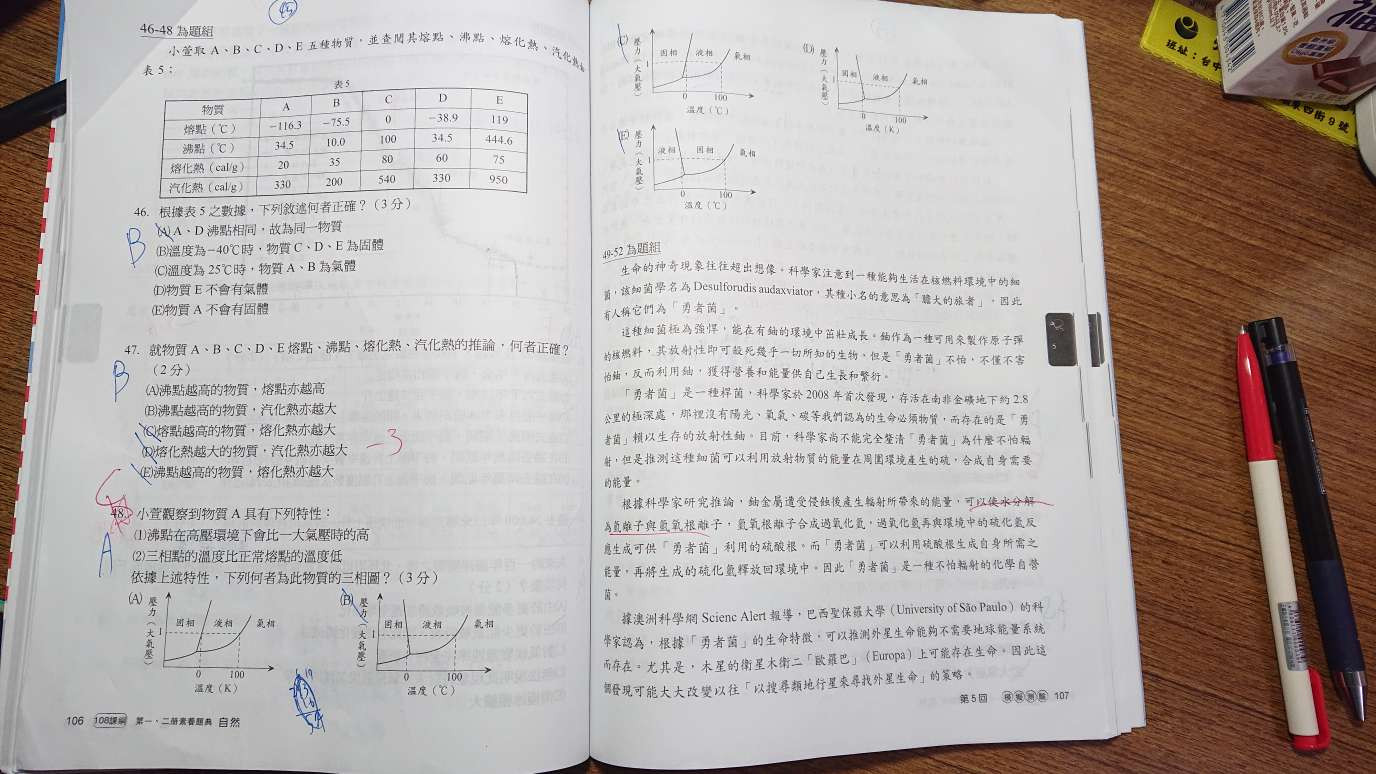 45
46-48 為題組
小萱取 A、B、C、D、E 五種物質,並查閱其熔點、沸點、熔化熱、汽化熱如
表 5:
表5
物質 A B C D E
熔點(℃) −116.3 −75.5 0 −38.9 119
沸點(℃) 34.5 10.0 100 34.5 444.6
熔化熱(cal/g) 20 35 80 60 75
汽化熱(cal/g) 330 200 540 330 950
46. 根據表 5 之數據,下列敘述何者正確?(3 分)
B
(A) A、D 沸點相同,故為同一物質
(B)溫度為−40℃時,物質 C、D、E 為固體
(C)溫度為 25℃時,物質 A、B 為氣體
(D)物質 E 不會有氣體
(E)物質 A 不會有固體
47. 就物質 A、B、C、D、E 熔點、沸點、熔化熱、汽化熱的推論,何者正確?
(2 分)
B
(A)沸點越高的物質,熔點亦越高
(B)沸點越高的物質,汽化熱亦越大
(C)熔點越高的物質,熔化熱亦越大
(D)熔化熱越大的物質,汽化熱亦越大
−3
(E)沸點越高的物質,熔化熱亦越大
C
48. 小萱觀察到物質 A 具有下列特性:
A
(1)沸點在高壓環境下會比一大氣壓時的高
(2)三相點的溫度比正常熔點的溫度低
依據上述特性,下列何者為此物質的三相圖?(3 分)
(A) 壓力(大氣壓) 1 固相 液相 氣相
0 100
溫度(K)
(B) 壓力(大氣壓) 1 固相 液相 氣相
0 100
溫度(℃)
106 108課綱 第一、二冊素養題典 自然
(C) 壓力(大氣壓) 1 固相 液相 氣相
0 100
溫度(℃)
(D) 壓力(大氣壓) 1 固相 液相 氣相
0 100
溫度(K)
(E) 壓力(大氣壓) 1 液相 固相 氣相
0 100
溫度(℃)
49-52 為題組
生命的神奇現象往往超出想像。科學家注意到一種能夠生活在核燃料環境中的細
菌,該細菌學名為 Desulforudis audaxviator,其種小名的意思為「膽大的旅者」,因此
有人稱它們為「勇者菌」。
這種細菌極為強悍,能在有鈾的環境中茁壯成長。鈾作為一種可用來製作原子彈
的核燃料,其放射性即可殺死幾乎一切所知的生物,但是「勇者菌」不怕,不僅不害
怕鈾,反而利用鈾,獲得營養和能量供自己生長和繁衍。
「勇者菌」是一種桿菌,科學家於 2008 年首次發現,存活在南非金礦地下約 2.8
公里的極深處,那裡沒有陽光、氧氣、碳等我們認為的生命必須物質,而存在的是「勇
者菌」賴以生存的放射性鈾。目前,科學家尚不能完全釐清「勇者菌」為什麼不怕輻
射,但是推測這種細菌可以利用放射物質的能量在周圍環境產生的硫,合成自身需要
的能量。
根據科學家研究推論,鈾金屬遭受侵蝕後產生輻射所帶來的能量,可以使水分解
為氫離子與氫氧根離子,氫氧根離子合成過氧化氫,過氧化氫再與環境中的硫化氫反
應生成可供「勇者菌」利用的硫酸根。而「勇者菌」可以利用硫酸根生成自身所需之
能量,再將生成的硫化氫釋放回環境中。因此「勇者菌」是一種不怕輻射的化學自營
菌。
據澳洲科學網 Scienc Alert 報導,巴西聖保羅大學(University of São Paulo)的科
學家認為,根據「勇者菌」的生命特徵,可以推測外星生命能夠不需要地球能量系統
而存在。尤其是,木星的衛星木衛二「歐羅巴」(Europa)上可能存在生命。因此這
個發現可能大大改變以往「以搜尋類地行星來尋找外星生命」的策略。
第5回 模擬測驗 107
班址:台中
四街9號